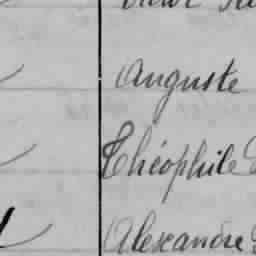 Auguste
Théophile
Alexandre